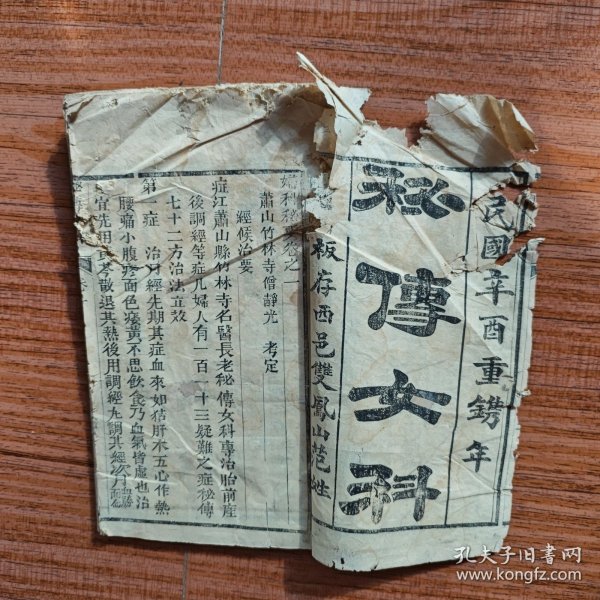 民國辛酉重鐫年
秘傳女科
板存西邑雙鳳山范姓
婦科秘要卷之一
蕭山竹林寺僧靜光 考定
經候治要
浙江蕭山縣竹林寺名醫長老秘傳女科專治胎前產
後調經等症凡婦人有一百一十三疑難之症秘傳
七十二方治法立效
第一症 治月經先期其症血來如猪肝水五心作熱
腰痛小腹疼面色痿黃不思飲食乃血氣皆虛也治
宜先用黃芩散退其熱後用調經丸調其經
孔夫子旧书网
www.kongfz.com